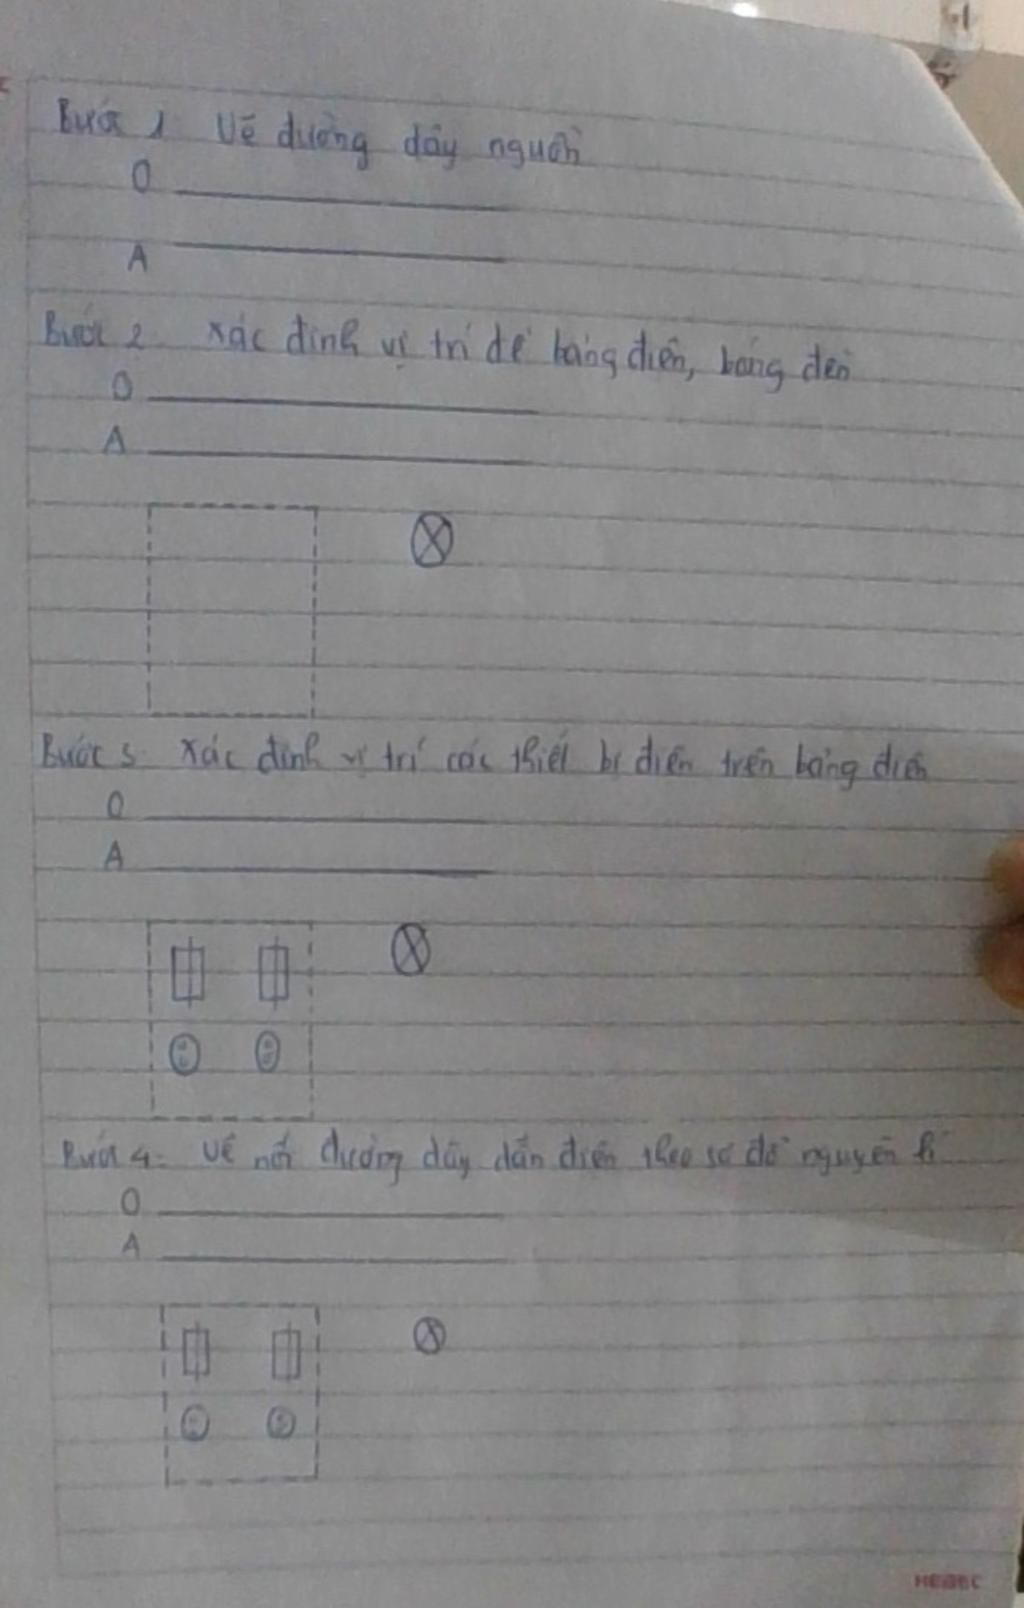 Bước 1 Vẽ đường dây nguồn
O
A
Bước 2 Xác định vị trí để bảng điện, bóng đèn
O
A
Bước 3 Xác định vị trí các thiết bị điện trên bảng điện
O
A
Bước 4: Vẽ nối đường dây dẫn điện theo sơ đồ nguyên lí
O
A